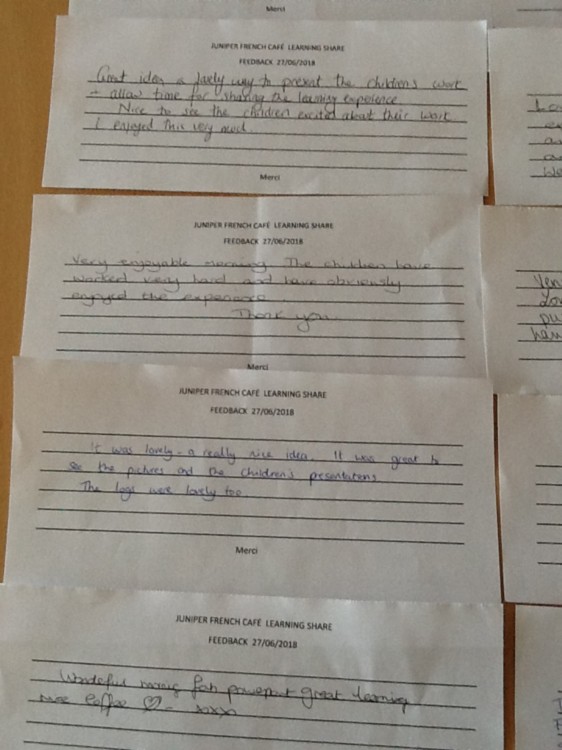 Merci
JUNIPER FRENCH CAFÉ LEARNING SHARE
FEEDBACK 27/06/2018
Great idea a lovely way to present the children's work
+ allow time for sharing the learning experience
Nice to see the children excited about their work
I enjoyed this very much.
Merci
JUNIPER FRENCH CAFÉ LEARNING SHARE
FEEDBACK 27/06/2018
Very enjoyable morning. The children have
worked very hard and have obviously
enjoyed the experience
Thank you.
Merci
JUNIPER FRENCH CAFÉ LEARNING SHARE
FEEDBACK 27/06/2018
It was lovely - a really nice idea. It was great to
see the pictures and the children's presentations
The logs were lovely too
Merci
JUNIPER FRENCH CAFÉ LEARNING SHARE
FEEDBACK 27/06/2018
Wonderful great learning
nice Coffee xxxx